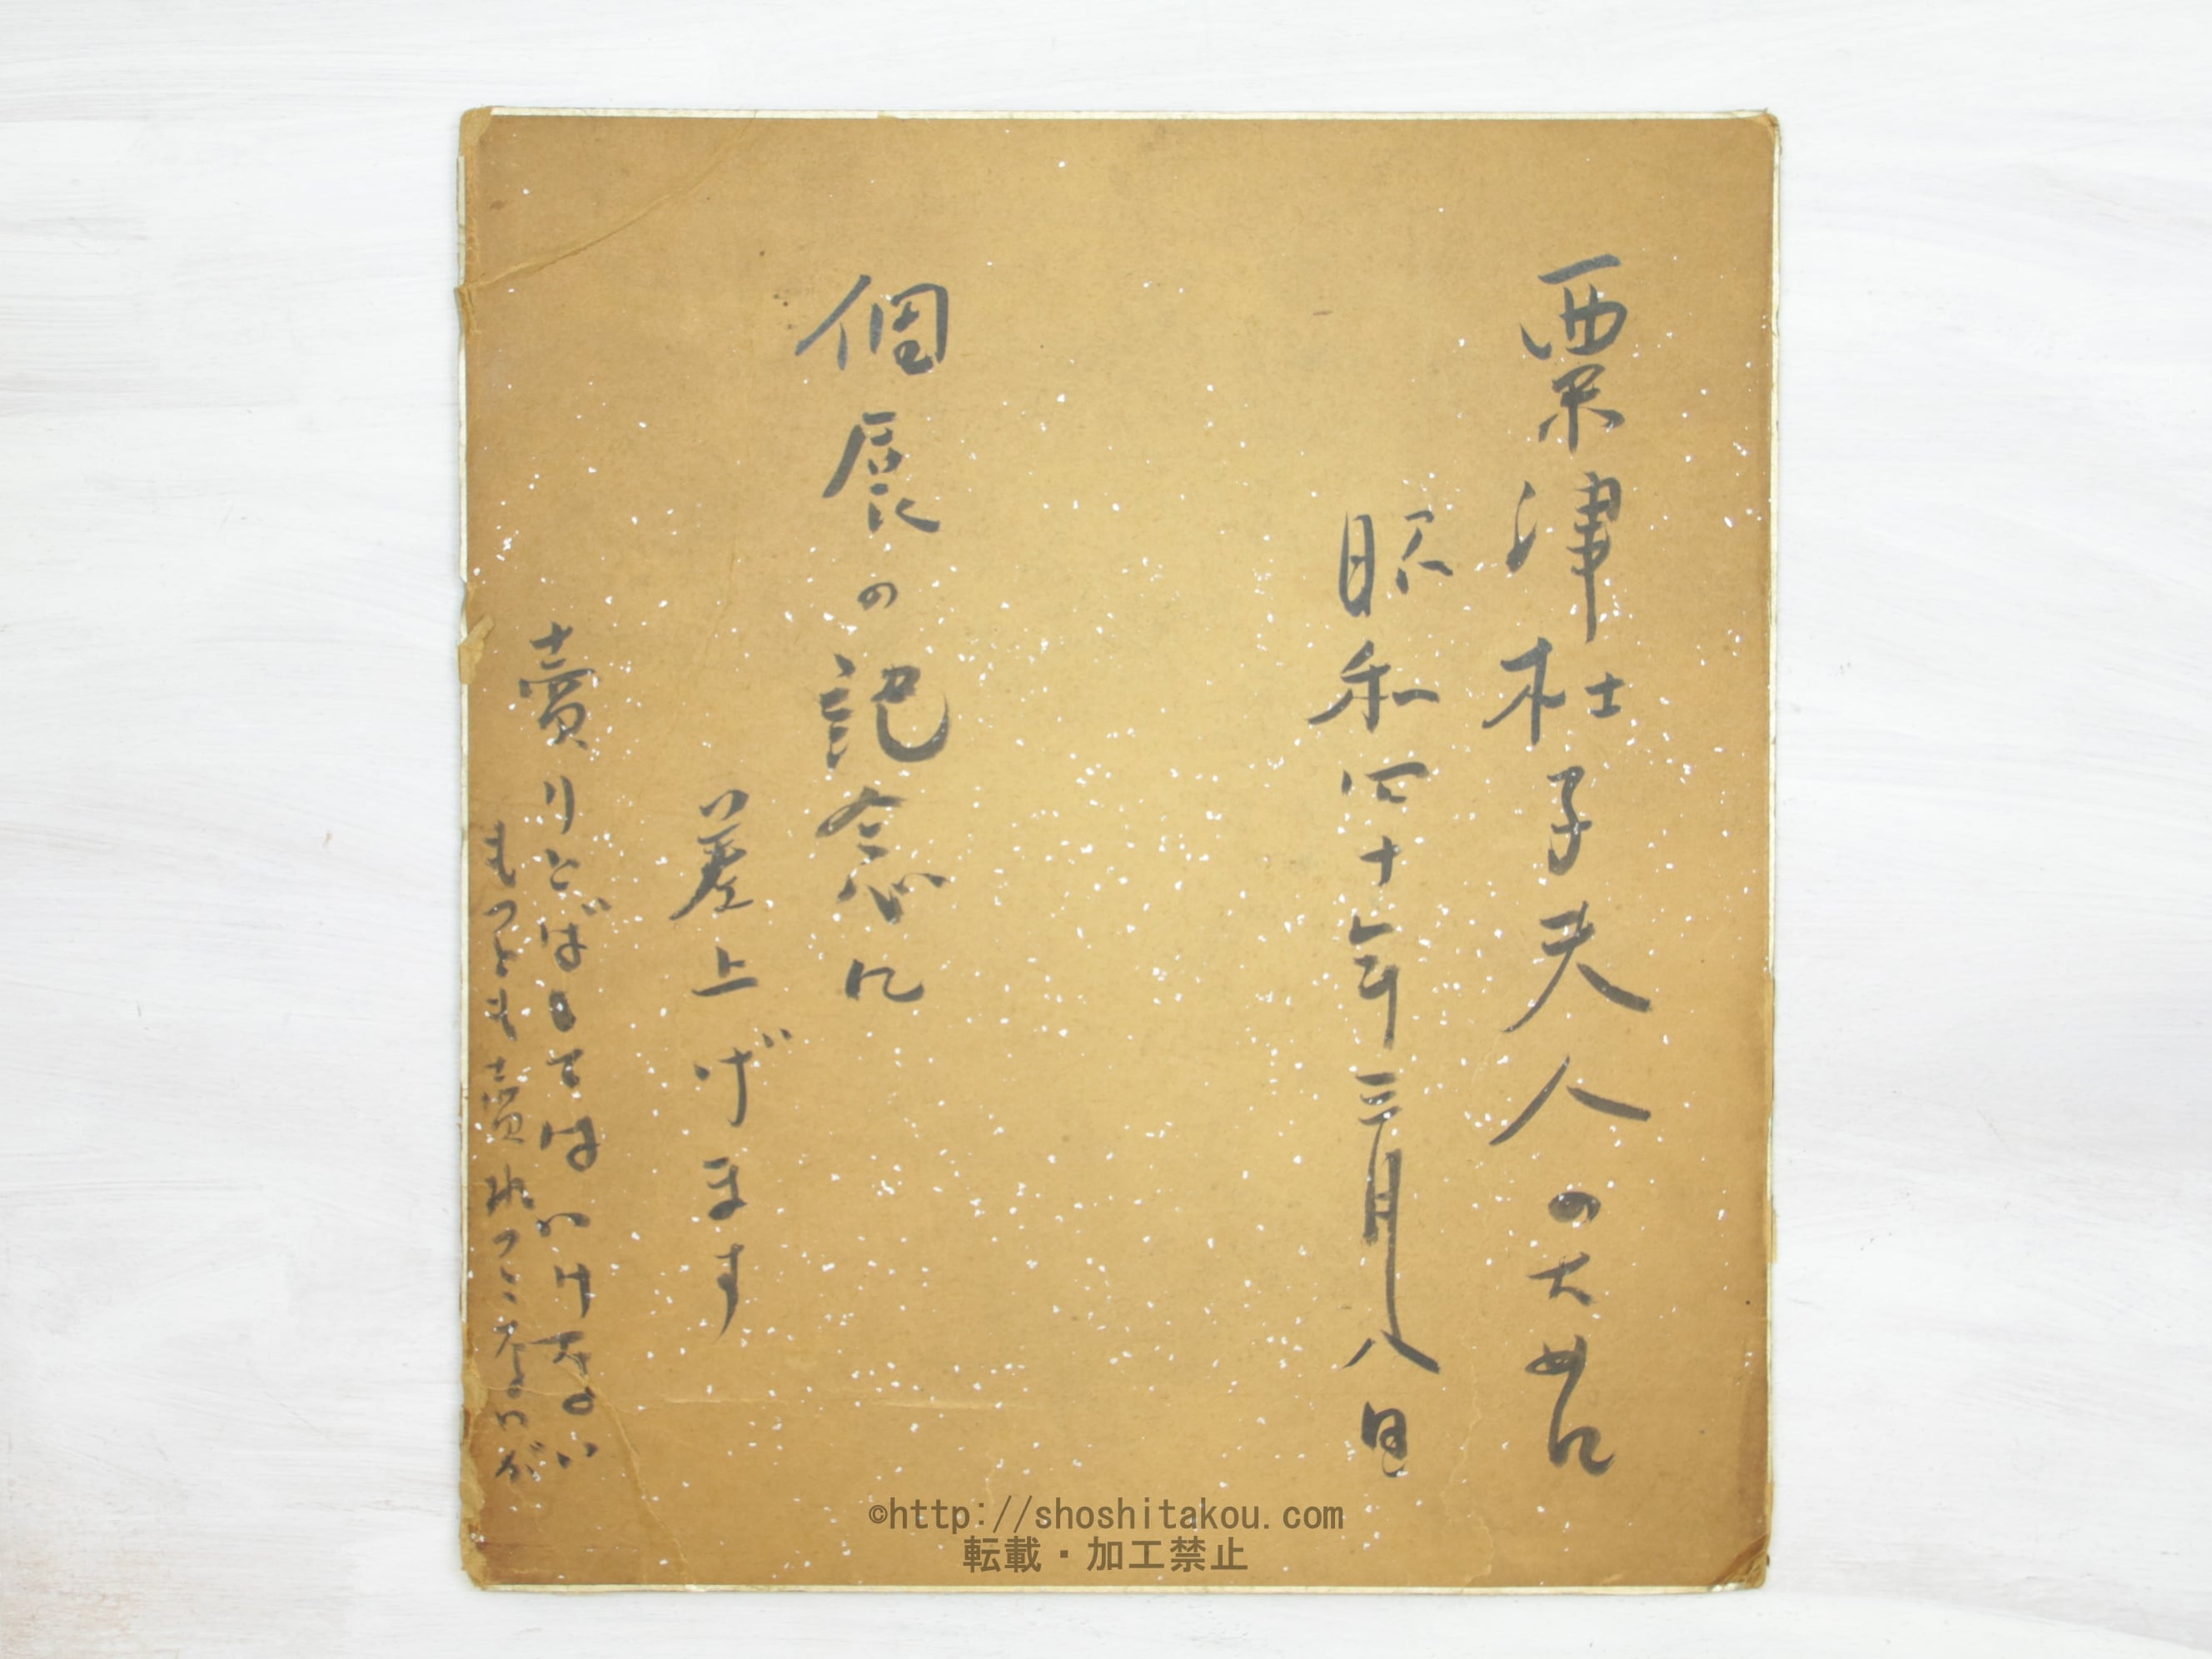 粟津杜子夫人のために
昭和四十年三月八日
個展の記念に
差上げます
賣りとばしてはいけない
もつとも賣れつこないが
©http://shoshitakou.com
転載・加工禁止